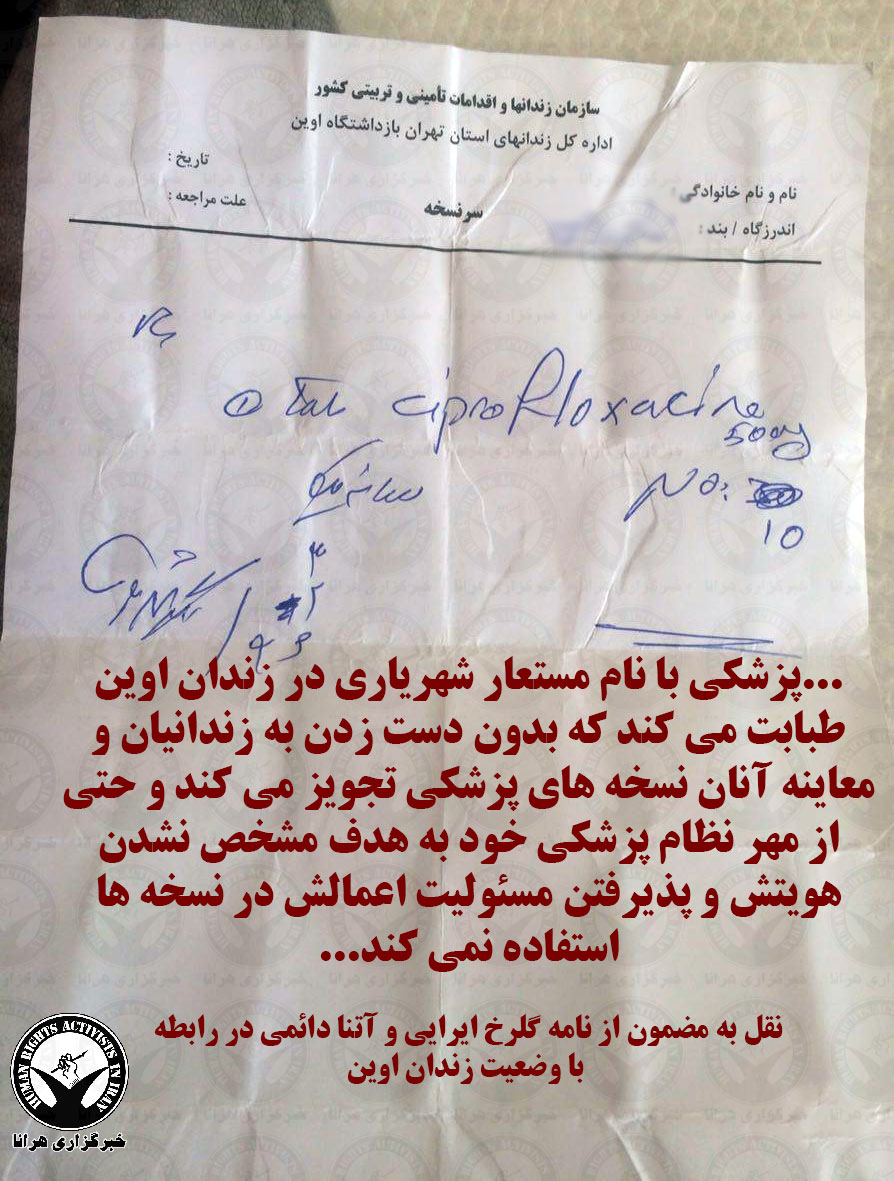 سازمان زندانها و اقدامات تأمینی و تربیتی کشور
اداره کل زندانهای استان تهران بازداشتگاه اوین
نام و نام خانوادگی :
تاریخ :
اندرزگاه / بند :
سرنسخه
علت مراجعه :
Rx
① Tab ciprofloxacine
500mg
No:
10
...پزشکی با نام مستعار شهریاری در زندان اوین
طبابت می کند که بدون دست زدن به زندانیان و
معاینه آنان نسخه های پزشکی تجویز می کند و حتی
از مهر نظام پزشکی خود به هدف مشخص نشدن
هویتش و پذیرفتن مسئولیت اعمالش در نسخه ها
استفاده نمی کند...
نقل به مضمون از نامه گلرخ ایرایی و آتنا دائمی در رابطه
با وضعیت زندان اوین
HUMAN RIGHTS ACTIVISTS IN IRAN
خبرگزاری هرانا